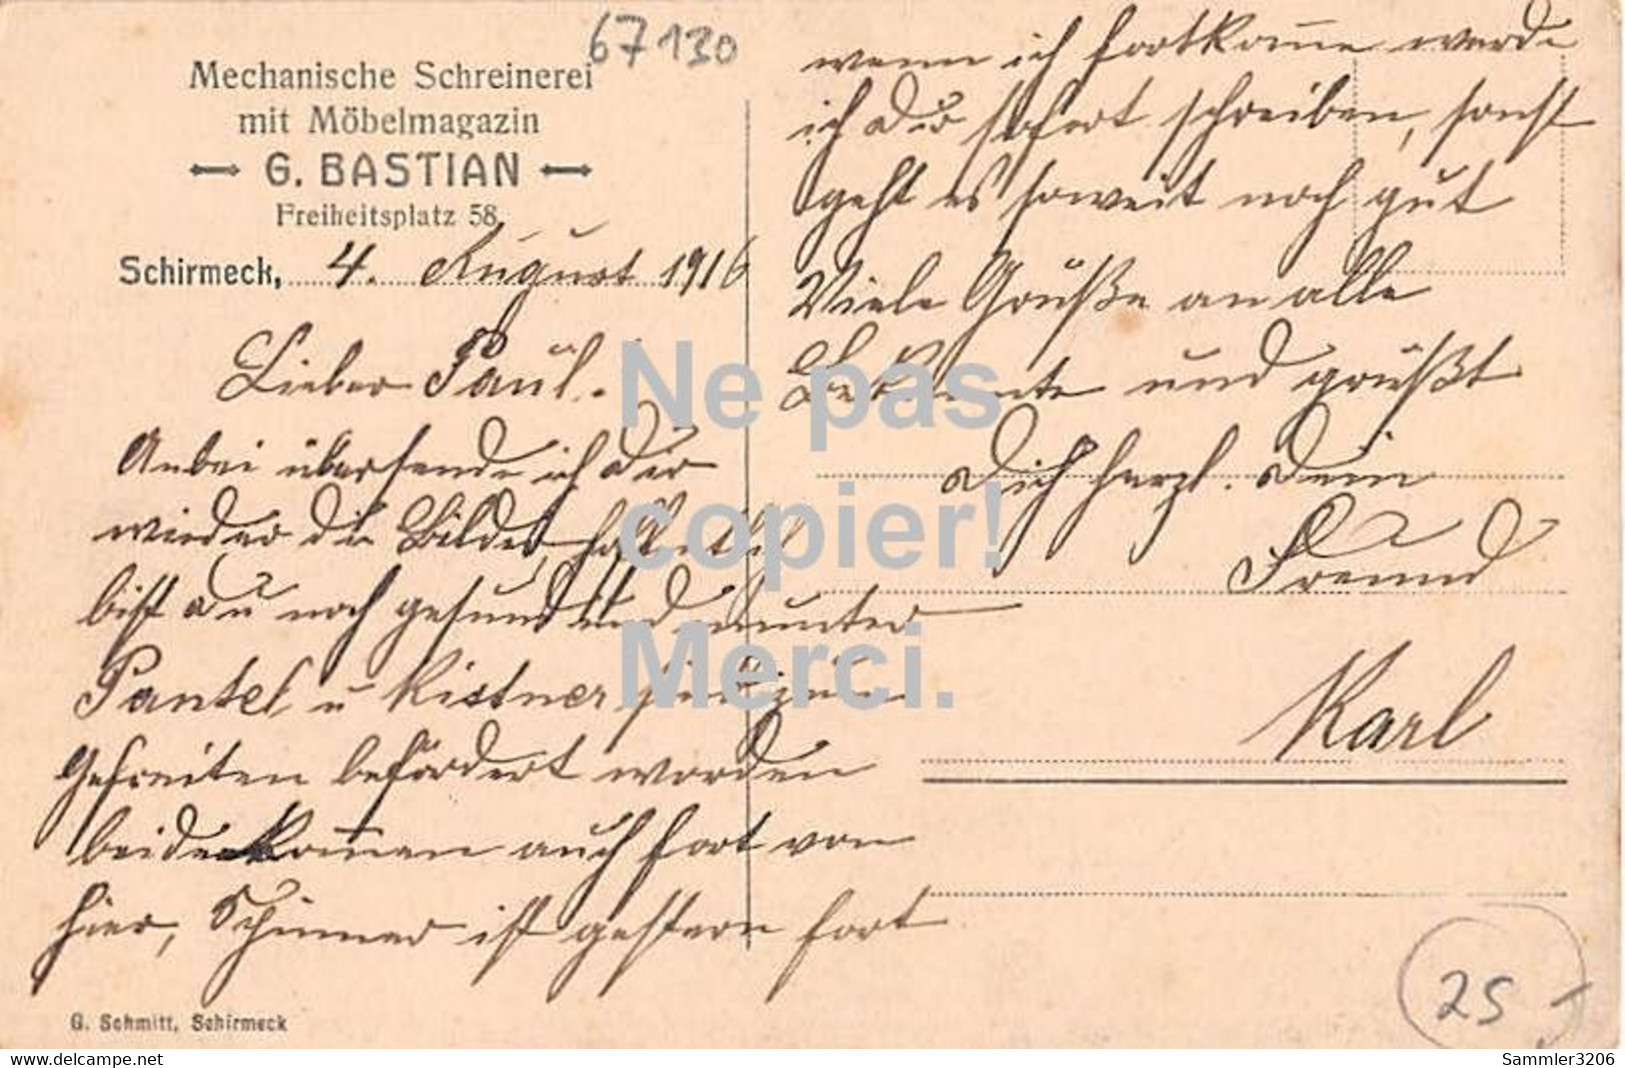 67130
Mechanische Schreinerei
mit Möbelmagazin
G. BASTIAN
Freiheitsplatz 58.
Schirmeck, 4. August 1916
Lieber Paul.
Anbei übersende ich Dir
wieder die Bilder, hoffentl
bist Du noch gesund und munter
Pantel u Kistner sind zum
Gefreiten befördert worden
beide kommen auch fort von
hier, Schirmer ist gestern fort
wenn ich fortkomme werde
ich Dir sofort schreiben, sonst
geht es soweit noch gut
Viele Grüße an alle
Bekannte und grüßt
Dich herzl. Dein
Freund
Karl
Ne pas
copier!
Merci.
25
G. Schmitt, Schirmeck
www.delcampe.net
Sammler3206